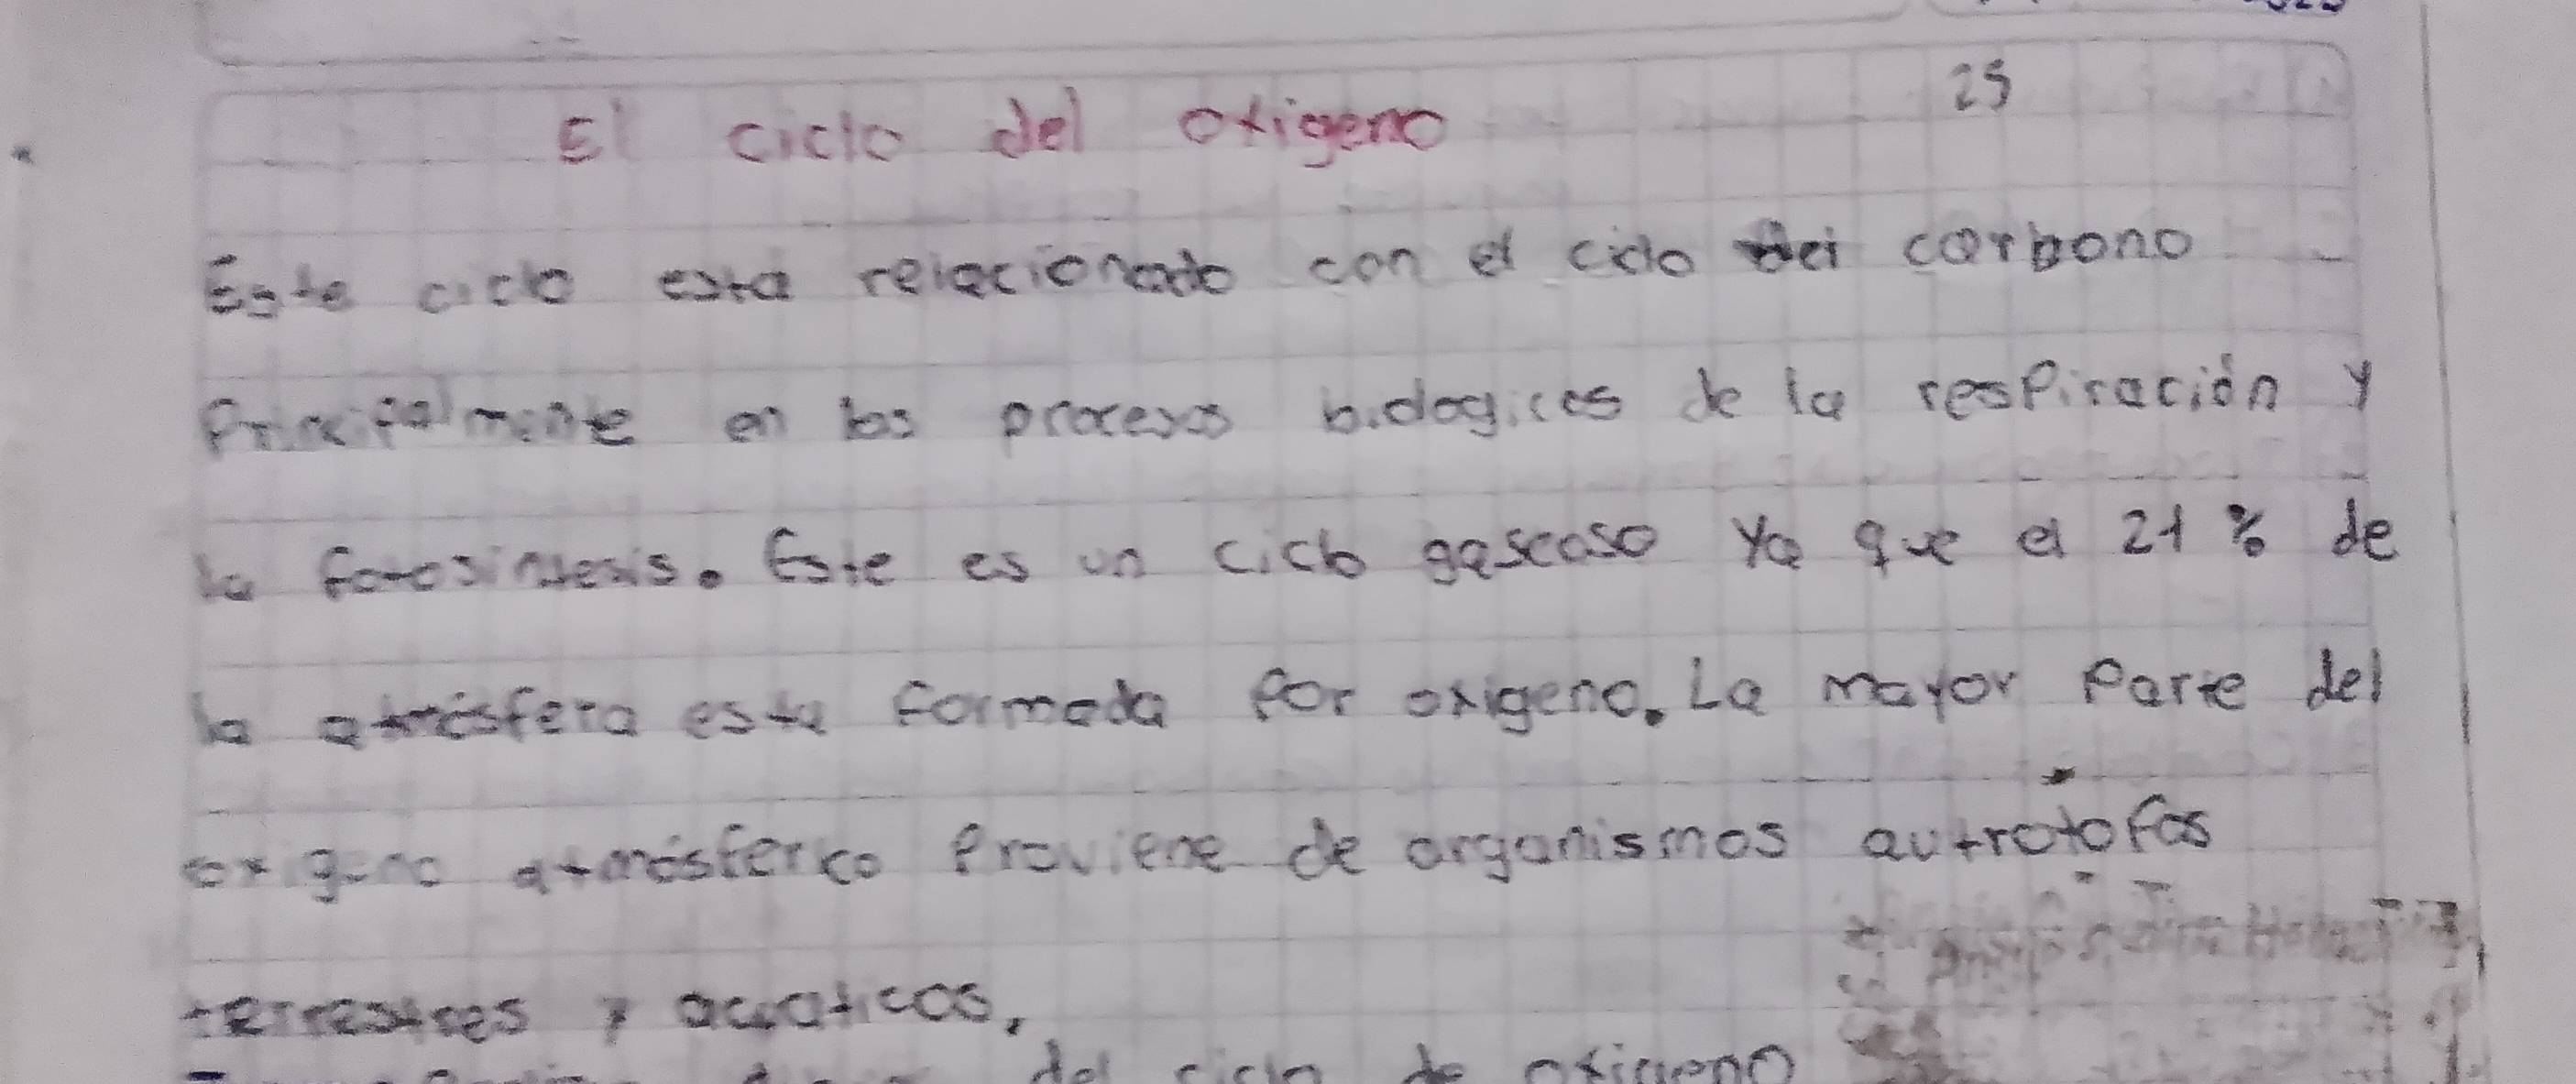 25
El ciclo del oxigeno
Este ciclo esta relacionado con el ciclo del carbono
Principalmente en los procesos biologicos de la respiración y
la fotosintesis. Este es un ciclo gaseoso ya que el 21 % de
la atmósfera esta formada por oxigeno. La mayor Parte del
oxigeno atmósferico Proviene de organismos autrótofos
terrestres y acuaticos,
del ciclo de oxigeno